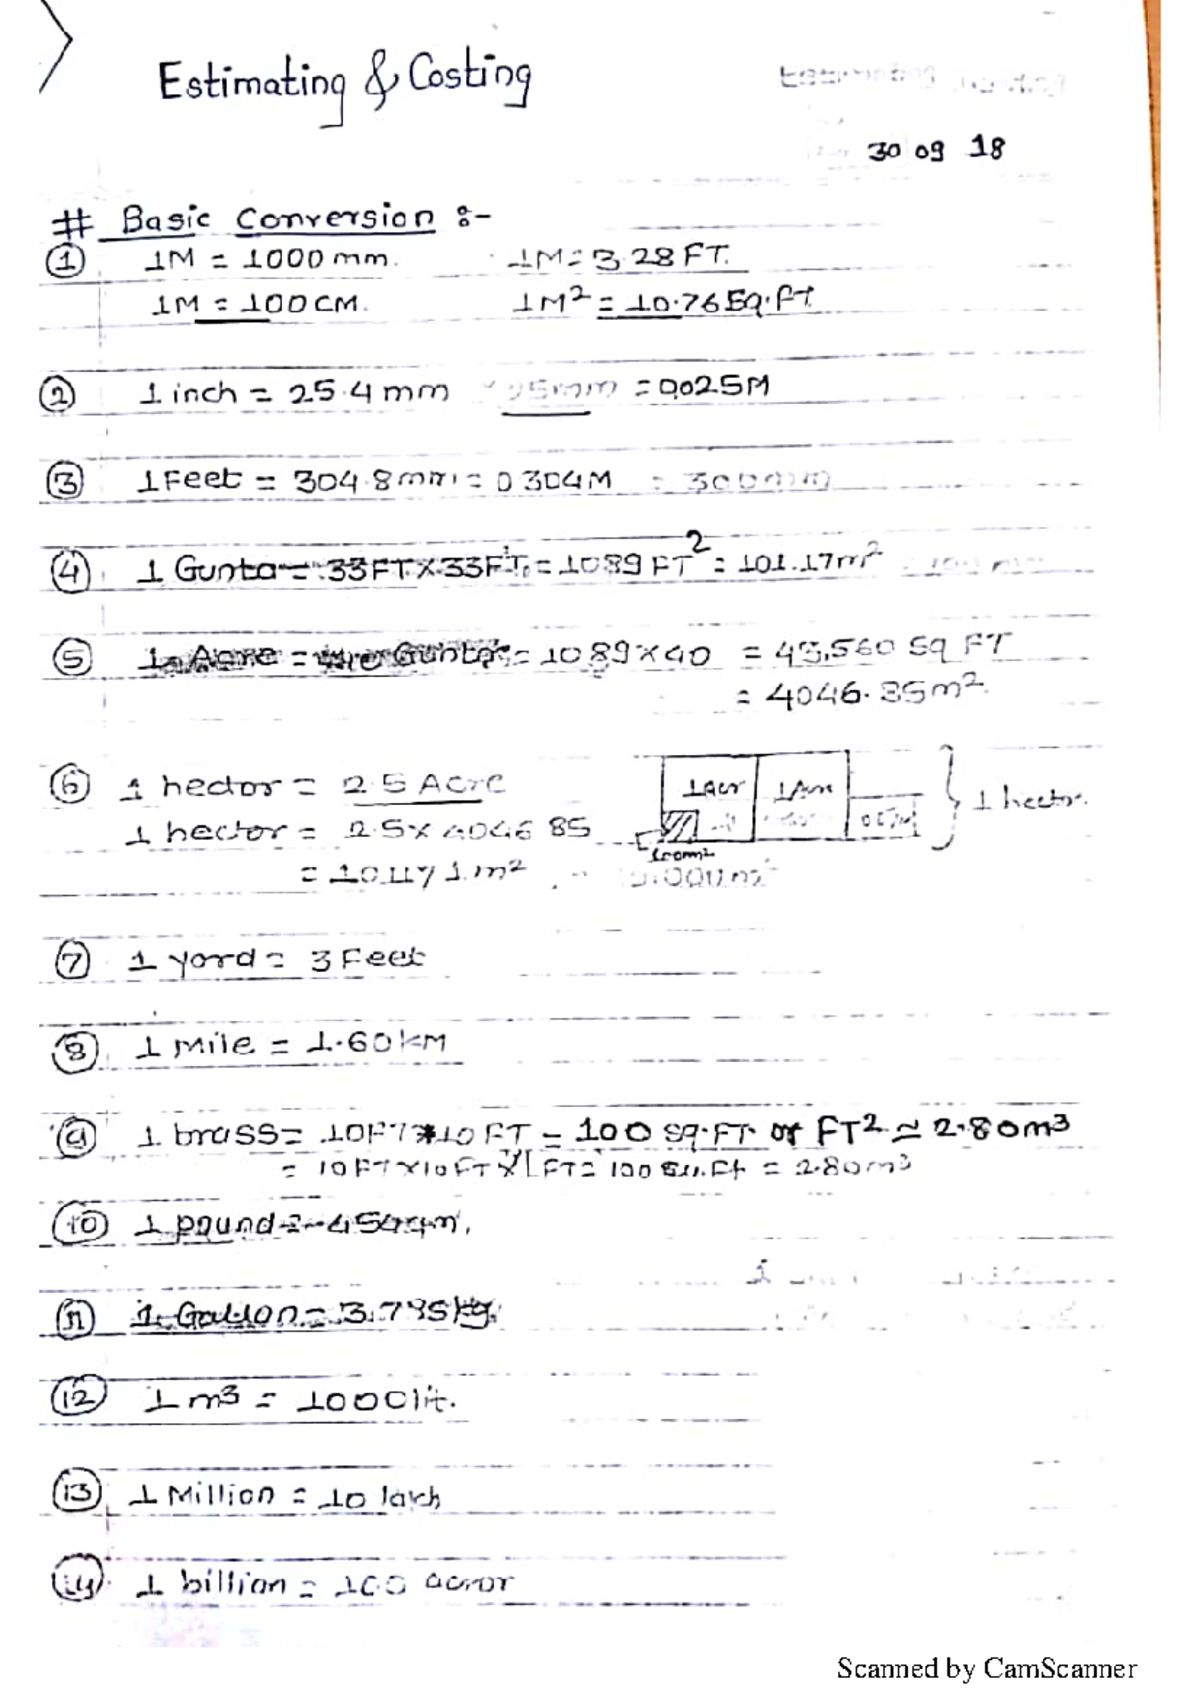 Estimating & Costing
30 09 18
# Basic Conversion :-
① 1M = 1000 mm. 1M = 3.28 FT.
1M = 100 CM. 1M² = 10.76 Sq.ft
② 1 inch = 25.4 mm 25mm = 0.025M
③ 1 Feet = 304.8mm = 0.304M = 300mm
④ 1 Gunta = 33FT X 33FT. = 1089 FT² = 101.17m²
⑤ 1 Acre = 40 Gunta = 1089 x 40 = 43,560 Sq FT
= 4046.85m².
⑥ 1 hector = 2.5 Acre
1 hector = 2.5 x 4046.85
= 10117.1 m²
1 Acr 1 Acre
1 hector.
100m²
⑦ 1 yord = 3 Feet
⑧ 1 Mile = 1.60 KM
⑨ 1 brass = 10FT*10FT = 100 sq.FT or FT² ≈ 2.80m³
= 10FTx10FT x 1FT = 100 = 2.80m³
⑩ 1 pound = 454gm.
⑪ 1 Gallon = 3.785kg.
⑫ 1 m³ = 1000 lit.
⑬ 1 Million = 10 lakh
⑭ 1 billion = 100
Scanned by CamScanner